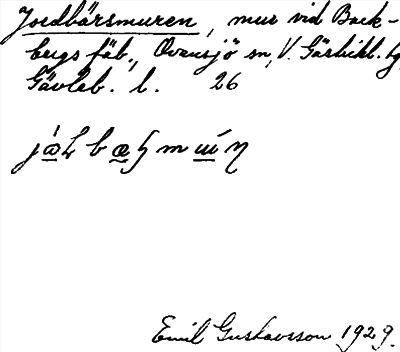 Jordbärsmuren, mur vid Back-
bergs fäb., Ovansjö sn, V. Gästrikl. tg,
Gävleb. l. 26
Emil Gustavsson 1929.